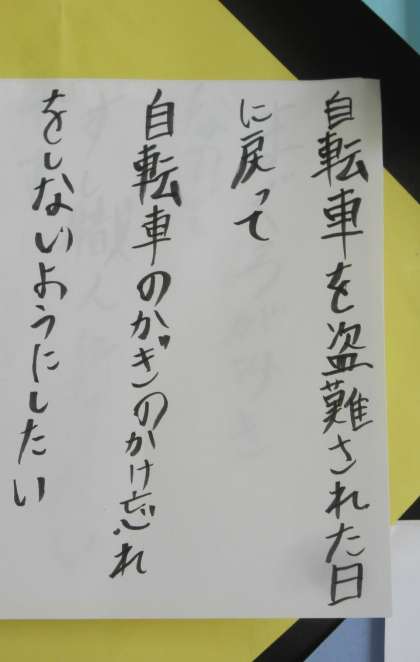 自転車を盗難された日
に戻って
自転車のかぎのかけ忘れ
をしないようにしたい